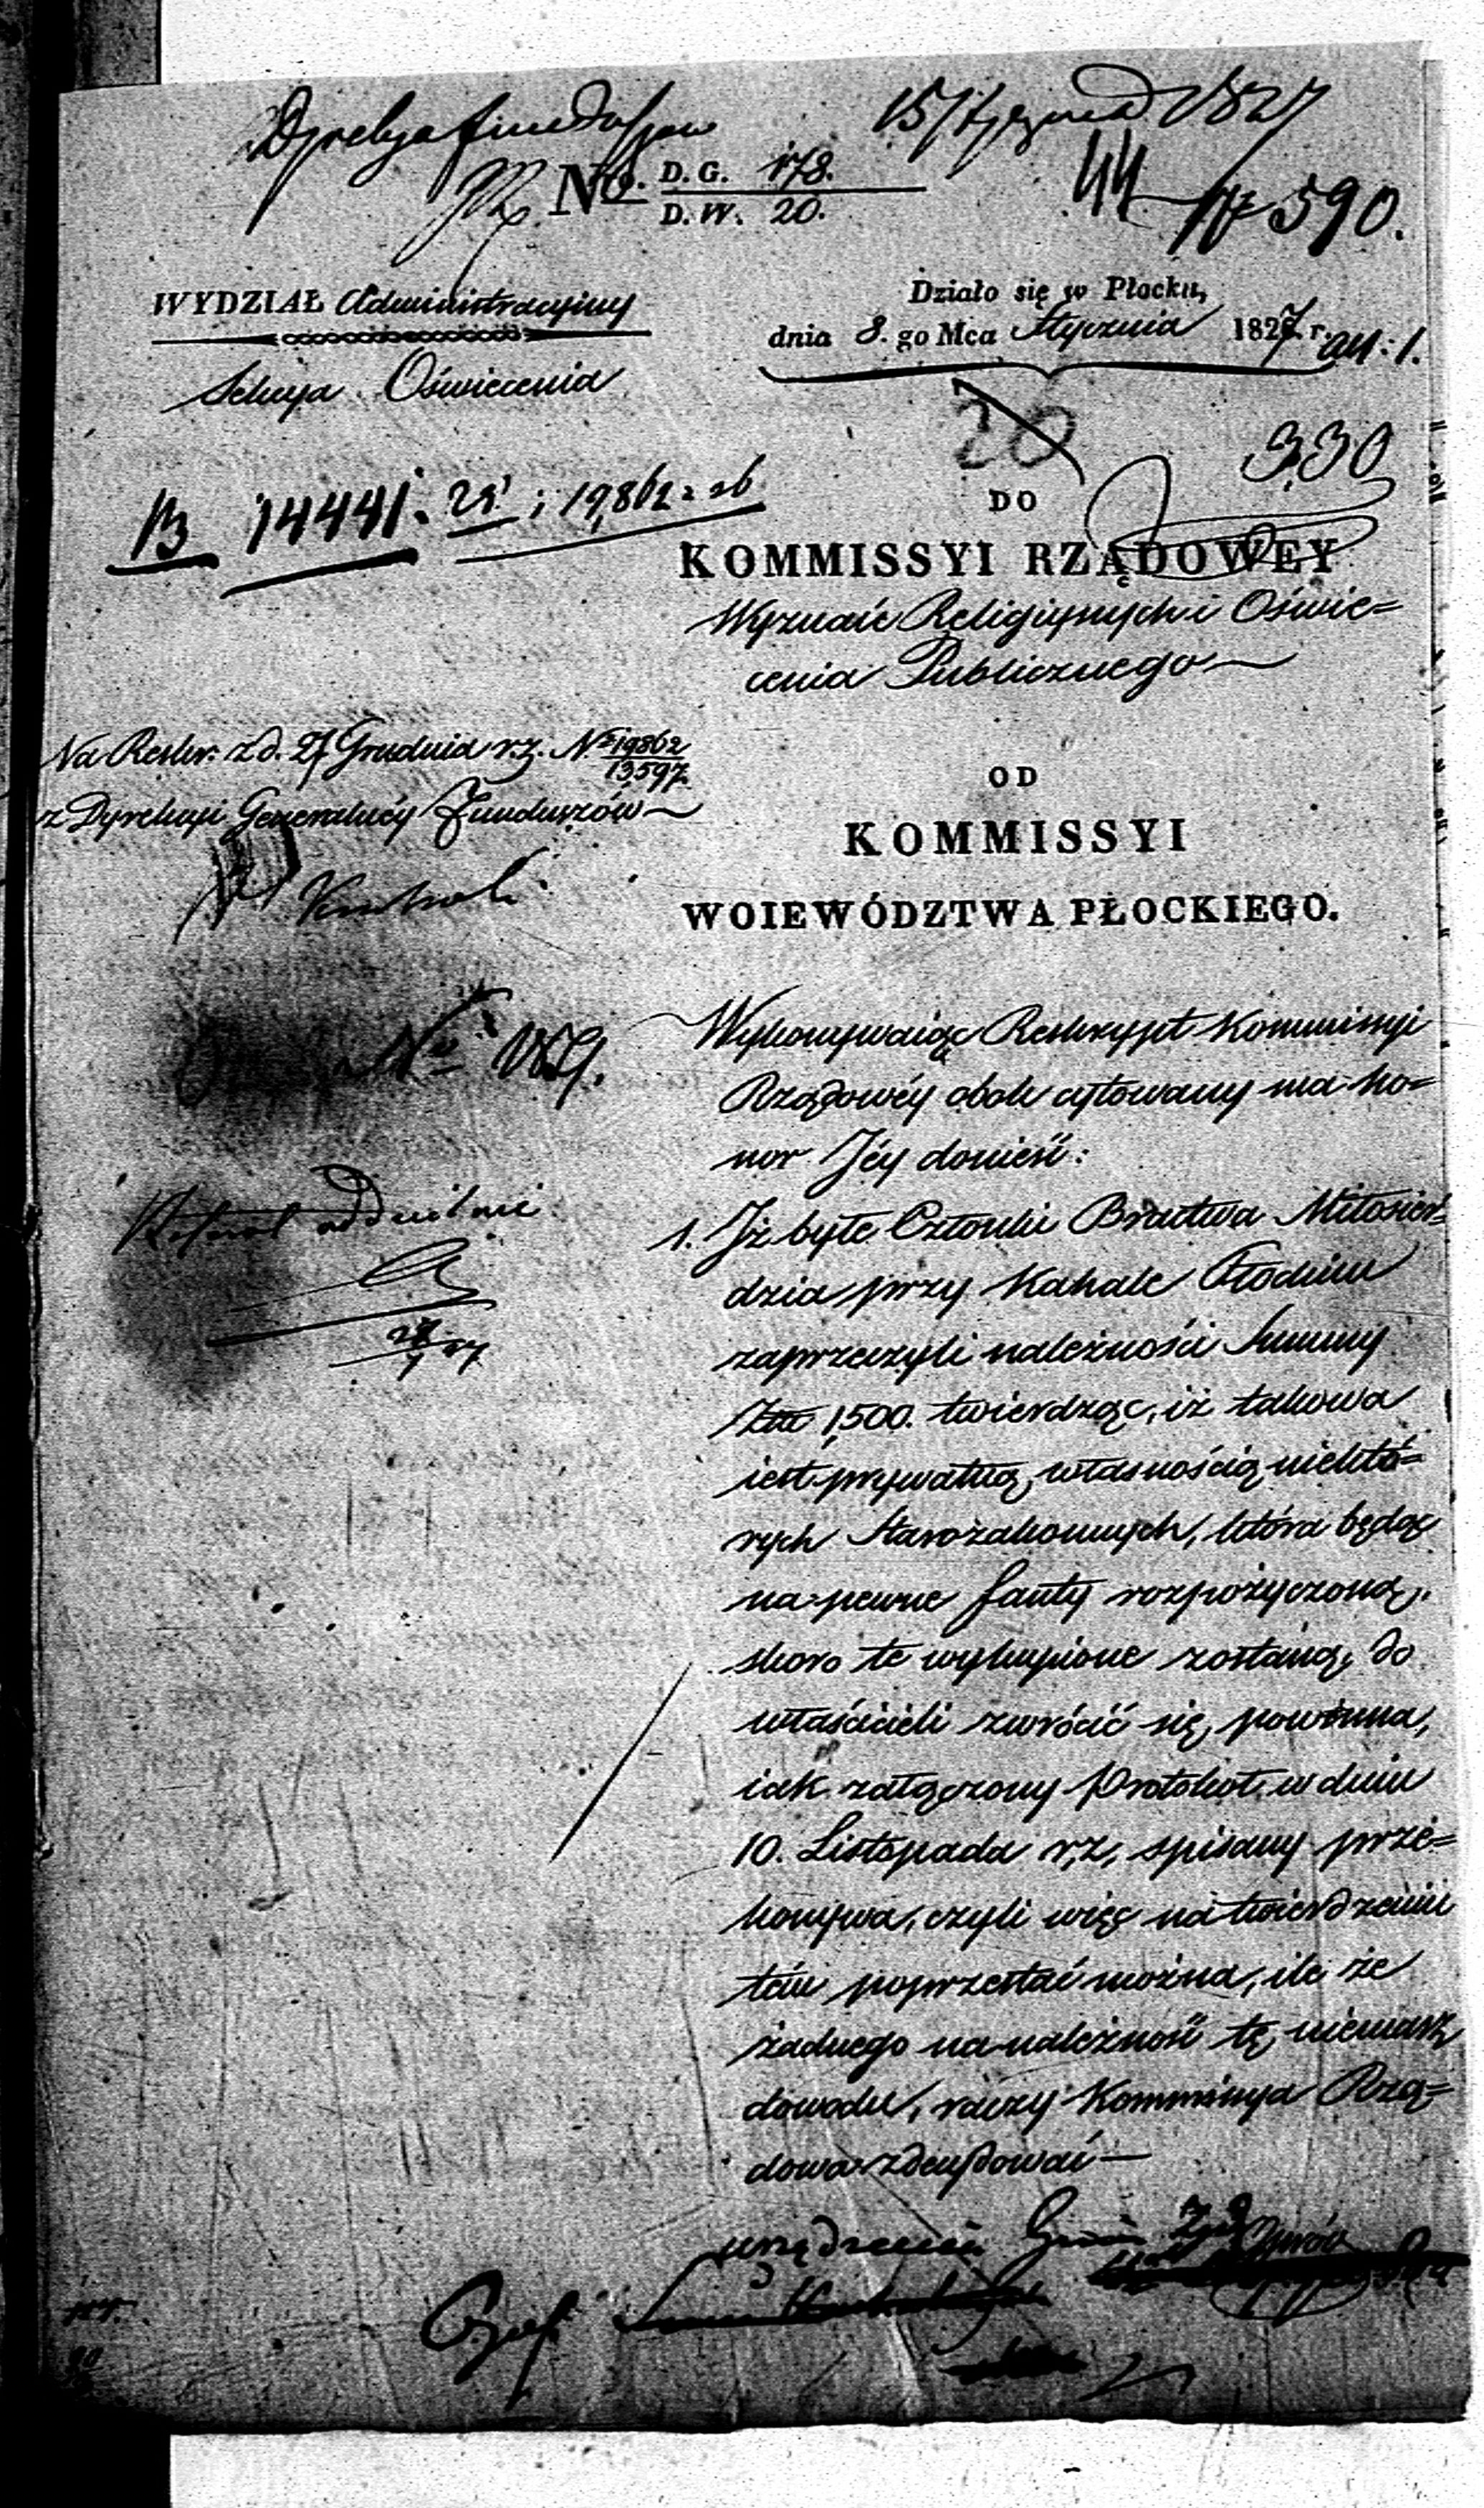 Dyrekcya funduszow
15 Stycznia 1827
No. D. G. 178.
D. W. 20.
44
N 590.
WYDZIAŁ Administracyiny
Sekcya Oświecenia
Działo się w Płocku,
dnia 8. go Mca Stycznia 1827 r.
an: 1.
20
330
B 14441.
DO
KOMMISSYI RZĄDOWEY
Wyznań Religiynych i Oświe=
cenia Publicznego
Na Reskr. z d. 27 Grudnia r. z. No 19862
13,597
z Dyrekcyi Generalnéy Funduszów
OD
KOMMISSYI
WOIEWÓDZTWA PŁOCKIEGO.
Kontroli
No
Wykonywaiąc Reskrypt Kommissyi
Rządowéy obok cytowany ma ho=
nor Jéy donieść:
1. Iż byłe Członki Bractwa Miłosier=
dzia przy Kahale Płockim
zaprzeczyli należności Summy
Złł 1,500. twierdząc, iż takowa
iest prywatną własnością niektó=
rych Starozakonnych, która będąc
na pewne fanty rozpożyczoną,
skoro te wykupione zostaną, do
właścicieli zwrócić się powinna,
iak załączony Protokoł w dniu
10. Listopada r. z. spisany prze=
konywa, czyli więc na twierdzeniu
tém poprzestać można, ile że
żadnego na należność tę niemasz
dowodu, raczy Kommissya Rzą=
dowa zdecydować —
urządzenia Gmin